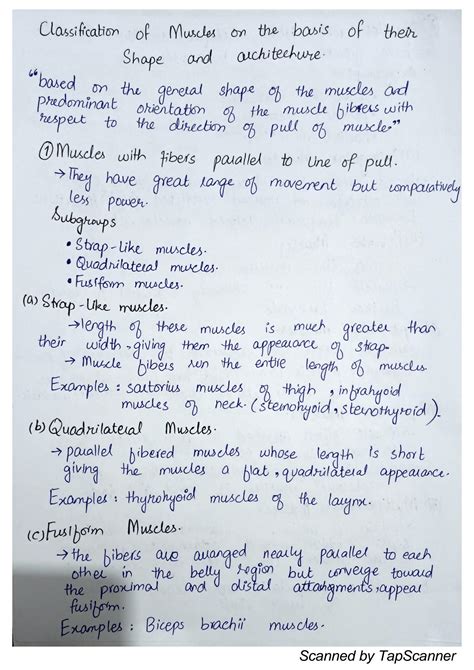 Classification of Muscles on the basis of their
Shape and architechure.
"based on the general shape of the muscles and
predominant orientation of the muscle fibres with
respect to the direction of pull of muscle."
① Muscles with fibers parallel to line of pull.
→ They have great range of movement but comparatively
less power.
Subgroups
• Strap-like muscles.
• Quadrilateral muscles.
• Fusiform muscles.
(a) Strap-like muscles.
→ length of these muscles is much greater than
their width, giving them the appearance of strap.
→ Muscle fibers run the entire length of muscles.
Examples : sartorius muscles of thigh, infrahyoid
muscles of neck. (sternohyoid, sternothyroid).
(b) Quadrilateral Muscles.
→ parallel fibered muscles whose length is short
giving the muscles a flat, quadrilateral appearance.
Examples : thyrohyoid muscles of the larynx.
(c) Fusiform Muscles.
→ the fibers are arranged nearly parallel to each
other in the belly region but converge toward
the proximal and distal attachments, appear
fusiform.
Examples : Biceps brachii muscles.
Scanned by TapScanner